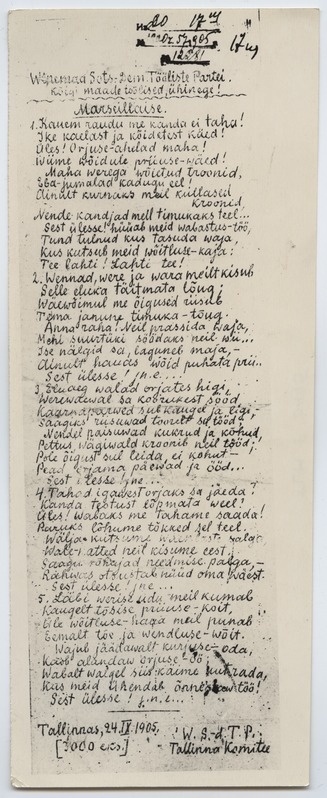 20 17
57/1905
17
Wenemaa Sots.-Dem. Tööliste Partei.
Kõigi maade töölised, ühinege!
Marseillaise.
1. Kauem raudu me kanda ei taha!
Ike kaelast ja köidetest käed!
Üles! Orjuse-ahelad maha!
Wiime wõidule priiuse-wäed!
Maha werega wõietud troonid,
Eba-jumalad kadugu eel!
Ainult kurnaks meil kullased
kroonid,
Nende kandjad meil timukaks teel...
Sest ülesse! hüüab meid wabastus-töö,
Tund tulnud kus tasuda waja,
Kus kutsub meid wõitluse-kaja:
Tee lahti! Lahti tee!
2. Wennad, were ja wara meilt kisub
Selle eluka täitmata lõug;
Waewõimul me õigused riisub
Tema janune timuka-tõug.
Anna raha! Neil prassida waja,
Mehi suurtüki söödaks neil wii...
Ise nälgid sa, laguneb maja,-
Ainult hauas wõid puhata prii..
Sest ülesse! j.n.e...
3. Eluaeg walad orjates higi,
Werewäewal sa kosrukest sööd,
Kaarnaparwed sul kaugel ja ligi,
Saagiks riisuwad toorelt su tööd;
Nendel paisuwad kukrud ja kõhud,
Pettus wägiwald kroonib neil tööd;
Pole õigust sul leida, ei kohut —
Pead orjama päewad ja ööd...
Sest ülesse! j.n.e...
4. Tahad igawest orjaks sa jäeda?
Kanda teotust lõpmata weel?
Üles! Wabaks me tahame saada!
Puruks lõhume tõkked sel teel.
Wälja kutsume
Wale-katted neil kisume eest.
Saagu röhujad needmise palga,—
Rahwas otsustab nüüd oma wäest.
Sest ülesse! j.n.e...
5. Läbi werise udu meil kumab
Kaugelt tõsise priiuse-koit,
Üle wõitluse-haga meil punab
Eemalt töe ja wendluse-wõit.
Wajub jäädawalt kurjuse-oda,
Kaob alandaw orjuse-öö;
Wabalt walgel siis käime rada,
Kus meid ühendab õnnistaw töö!
Sest ülesse! j.n.e...
Tallinnas, 24. IX 1905.
[3000 eks.]
W. S.-d. T. P.
Tallinna Komitee